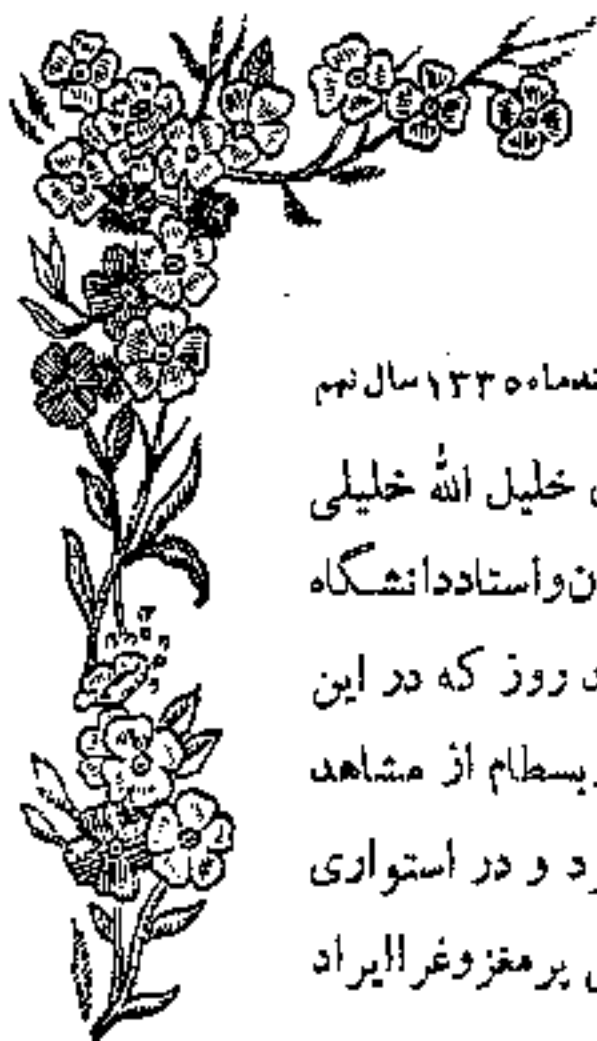 ۱۳۳۵ سال نهم
خلیل الله خلیلی
و استاد دانشگاه
روز که در این
بسطام از مشاهد
و در استواری
پر مغز و غرا ایراد